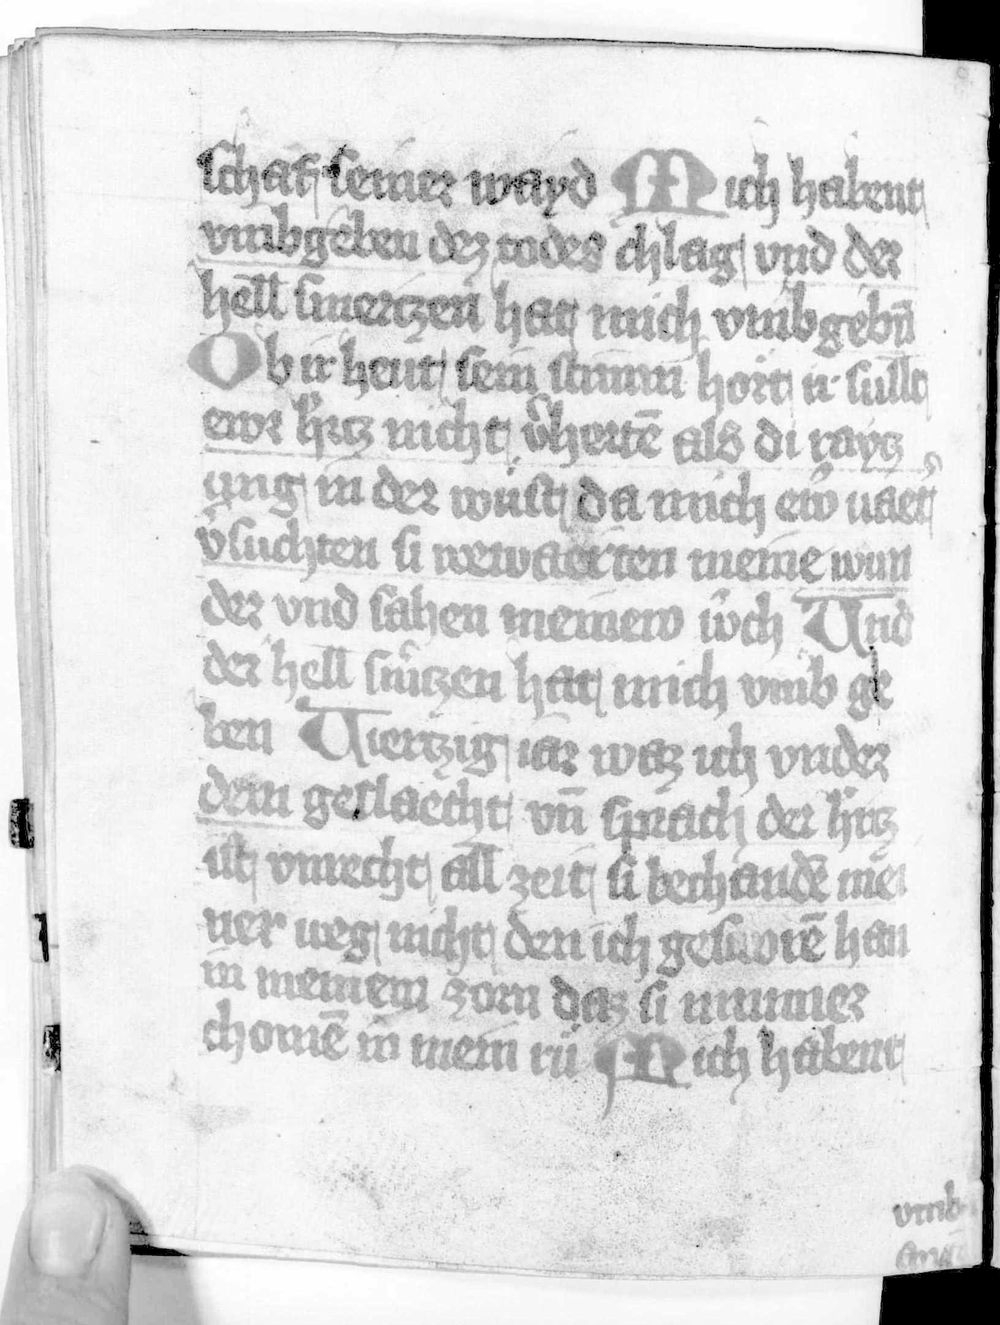 schaf seiner wayd Mich habent
vmbgeben dez todes chlag vnd der
hell smertzen hat mich vmbgebn̄
Ob ir heut sein stimm hort ir sullt
ewr hͤrtz nicht vͤhertē als di raytz
ung in der wüst da mich ew vaetͤ
vͤsuchten si wewaerten meine wun
der vnd sahen meinew wͤch Und
der hell smͤtzen hat mich vmb ge
ben Viertzig iar waz ich vnder
dem geslaecht vn̄ sprach der hͤrtz
ist vnrecht all zeit si bechandē mei
ner weg nicht den ich gesworē han
in meinem zorn daz si nimmer
chomē in mein rü Mich habent
vmb